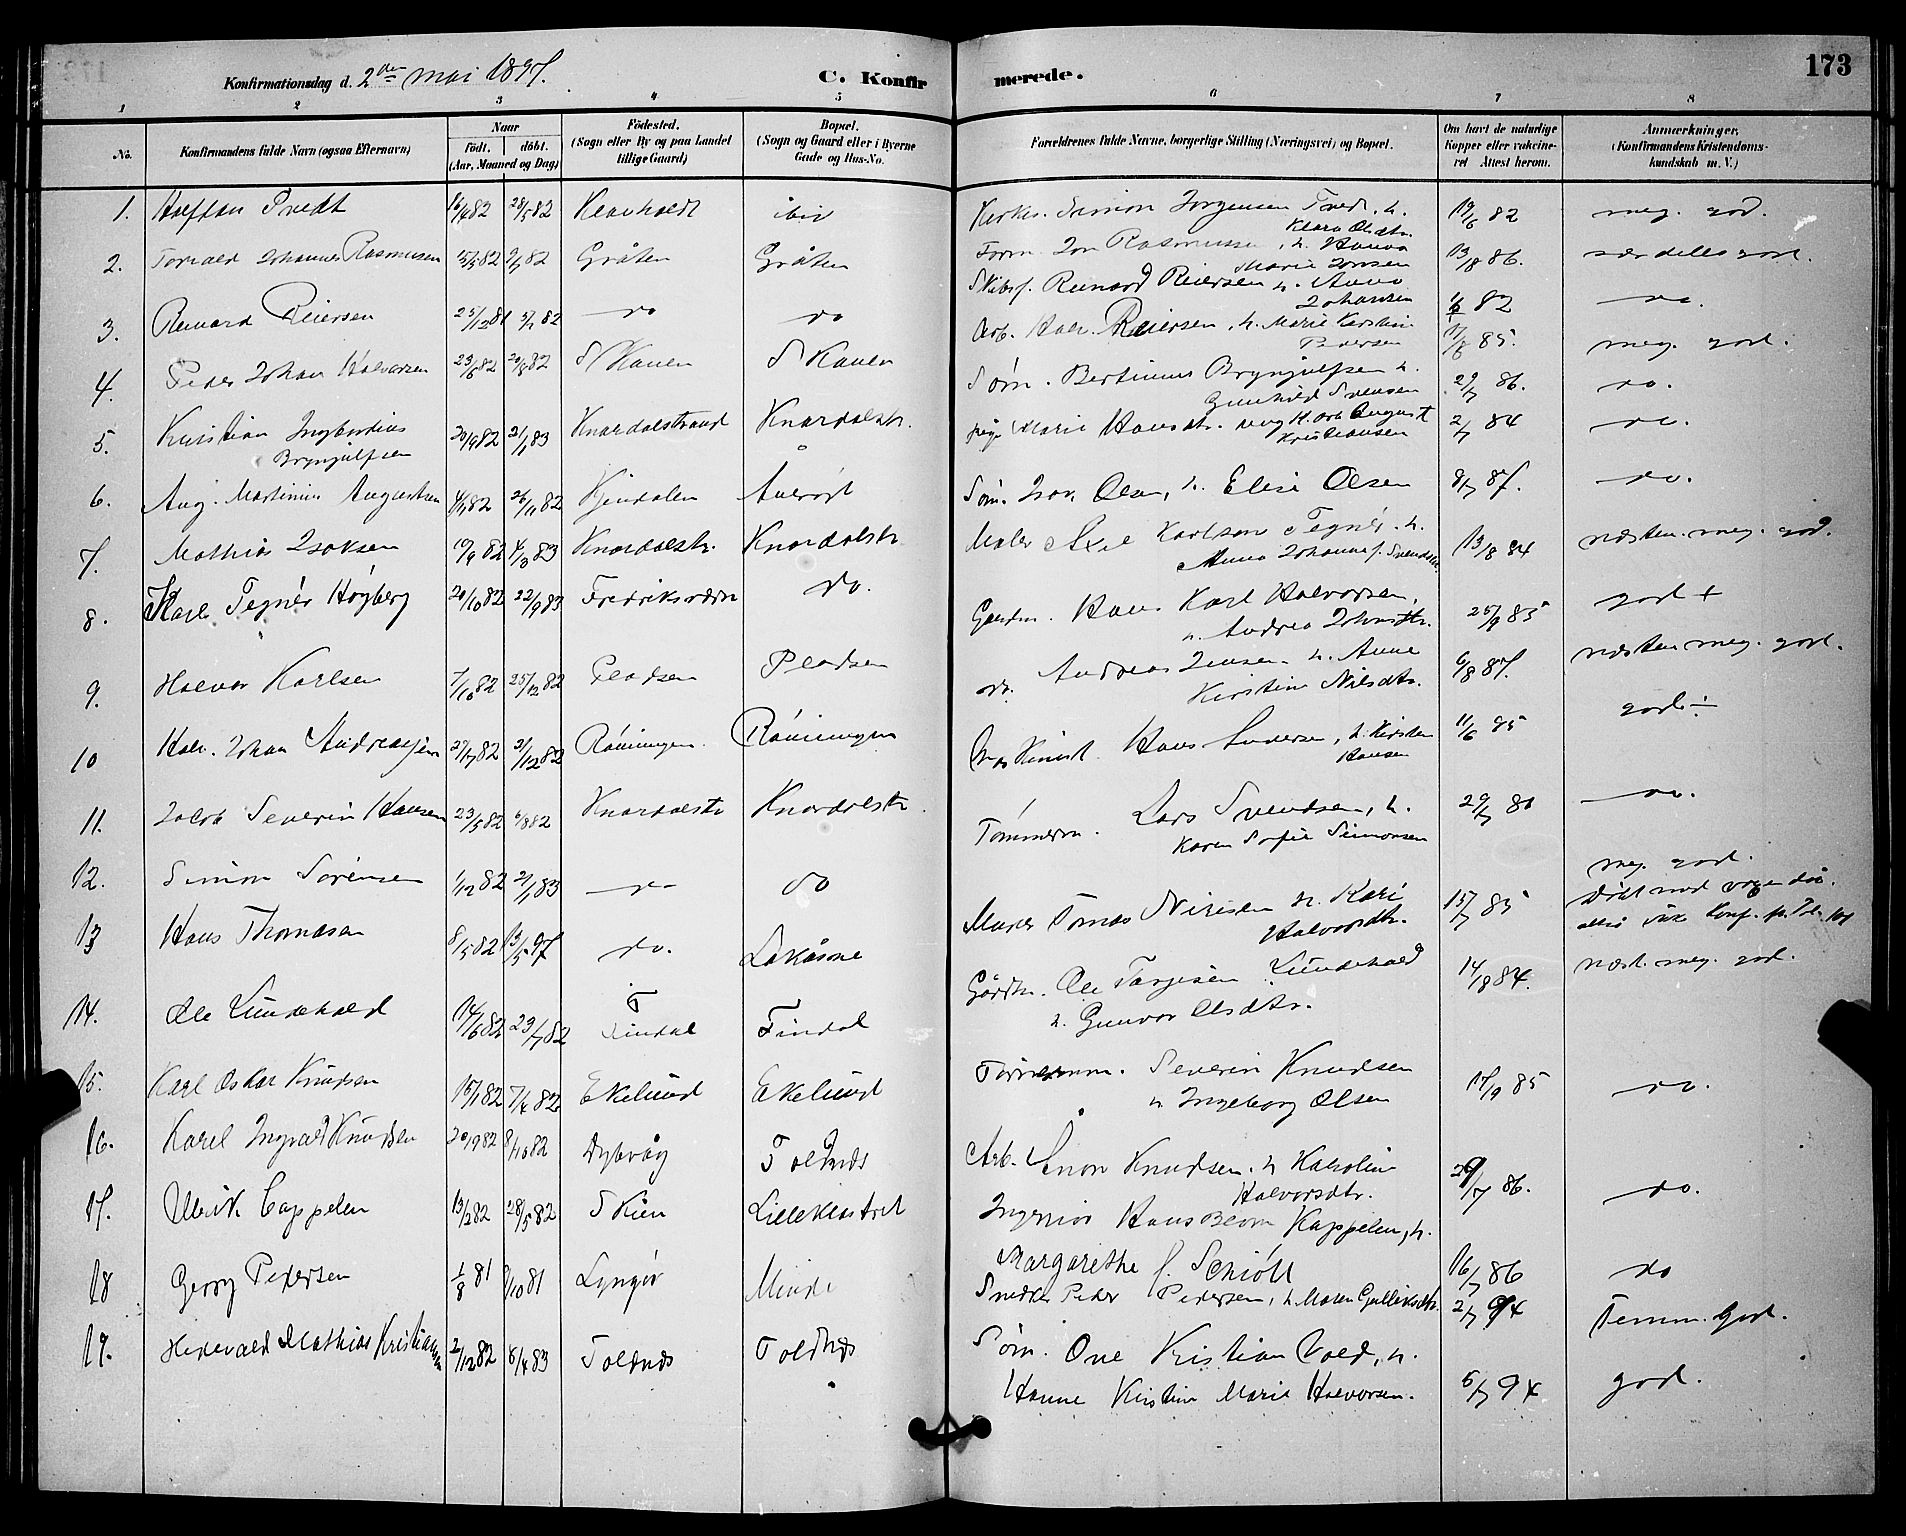 Konfirmationsdag d. 2den mai 1897. C. Konfirmerede. 173
1 2 3 4 5 6 7 8
No. Konfirmandens fulde Navn (ogsaa Efternavn) Naar Födt. döbt. (Aar, Maaned og Dag) Födested. (Sogn eller By og paa Landet tillige Gaard) Bopæl. (Sogn og Gaard eller i Byerne Gade og Hus-No. Forældrenes fulde Navne, borgerlige Stilling (Næringsvei) og Bopæl. Om havt de naturlige Kopper eller vakcineret Attest herom. Anmærkninger, (Konfirmandens Kristendomskundskab m. V.)
1. Halftan Tvedt 16/4 82 28/5 82 Kleivholdt ibid Kirkes. Simon Jørgensen Tvedt. h. Klara Olsdtr. 19/6 82 meg. god.
2. Torvald Johannes Rasmusen 15/5 82 82 Gråten Gråten Form. Jon Rasmussen, h. Hanna Marie Jonsen 13/8 86. særdeles god.
3. Reinard Reiersen 25/12 81 82 do do Skibsf. Reinard Reiersen h. Anna Johansen 82 do.
4. Peder Johan Halvorsen 23/6 82 20/8 82 S Kauen S Kauen Arb. Halv. Reiersen, h. Marie Kirstin Pedersen 17/8 85. meg. god.
5. Kristian Ingbertius Brynjulfsen 20/9 82 21/1 83 Knardalstrand Knardalstr. Søm. Bertinius Brynjulfsen h. Gunhild Svensen 29/7 86. do.
6. Aug. Martinius Augustsen 4/11 82 26/11 82 Kjendalen Aalrød pige Marie Hansdtr. ung K. Arb August Kristiansen 2/7 84 do.
7. Mathias Isaksen 19/9 82 4/3 83 Knardalstr. Knardalstr Søm. Isak Olsen, h. Elise Olsen 8/7 87. do.
8. Karl Tegnér Høgberg 20/10 82 22/9 83 Fredriksværn do. Maler Axel Karlson Tegnér. h. Anna Johanne f. Svendsen 13/8 84 næsten meg. god.
9. Halvor Karlsen 7/10 82 25/12 82 Pladsen Pladsen Gaardm. Hans Karl Halvorsen, h. Andrea Johnsdtr. 25/9 85 god +
10 Halv. Johan Andreassen 27/11 82 31/12 82 Røiningen. Røiningen do. Andreas Jensen h. Anne Kirstine Nilsdtr. 6/8 87. næsten meg. god.
11. Jakob Severin Hansen 23/5 82 6/8 82 Knardalstr Knardalstr Maskinist. Hans Andersen, h. Kirsten Hansen 11/6 85 god ÷
12. Simon Sørensen 1/12 82 21/1 83 do do Tømmerm. Lars Svendsen, h. Karen Sofie Simonsen 29/7 86 do.
13 Hans Thomasen 8/5 82 13/5 97 do. Lakåsne Murer Tomas Nirisen h. Kari Halvorsdtr. 15/7 85 meg god. Døbt med voxen dåb.
14. Ole Lundehold 14/6 82 23/7 82 Findal Findal Gårdbr. Ole Targesen Lundehold h. Gunvor Olsdtr. 14/8 84. næst. meg. god.
15. Karl Oskar Knudsen 15/1 82 7/4 82 Ekelund Ekelund Tømmerm. Severin Knudsen h Ingeborg Olsen 17/9 85 do.
16. Karel Ingvald Knudsen 20/9 82 8/10 82 Dybvåg Toldnæs Arb. Simon Knudsen. h Karolin Halvorsdtr. 29/7 86. do.
17. Ulrik Cappelen 13/2 82 28/5 82 Skien Lilleklostret Ingeniør Hans Blom Kappelen, h. Margarethe f. Schiött 16/7 86 do
18 Georg Pedersen 1/8 81 /10 81 Lyngør Minde Snedker Peder Pedersen, h. Maren Gulliksdtr. 2/7 94 Temm. god.
19. Hedevald Mathias Kristiansen 2/12 82 8/4 83 Toldnæs Toldnæs Søm. One Kristian Vold, h. Hanne Kristine Marie Halvorsen. 6/7 94 god.